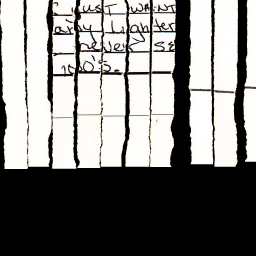 I JUST WANT
any lighter
never SE
100's.